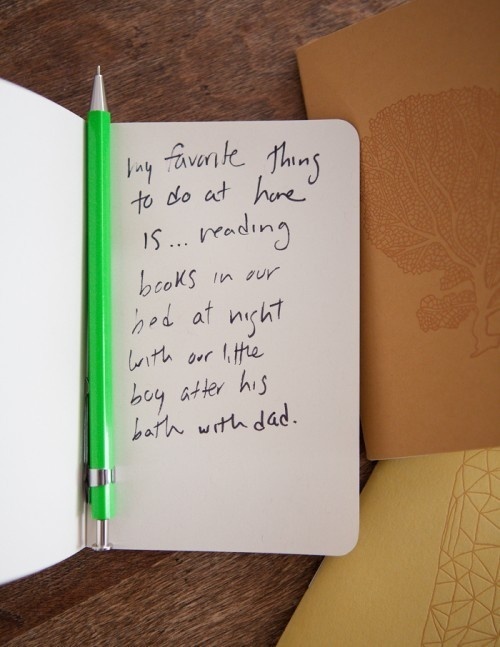 my favorite thing
to do at home
is... reading
books in our
bed at night
with our little
boy after his
bath with dad.